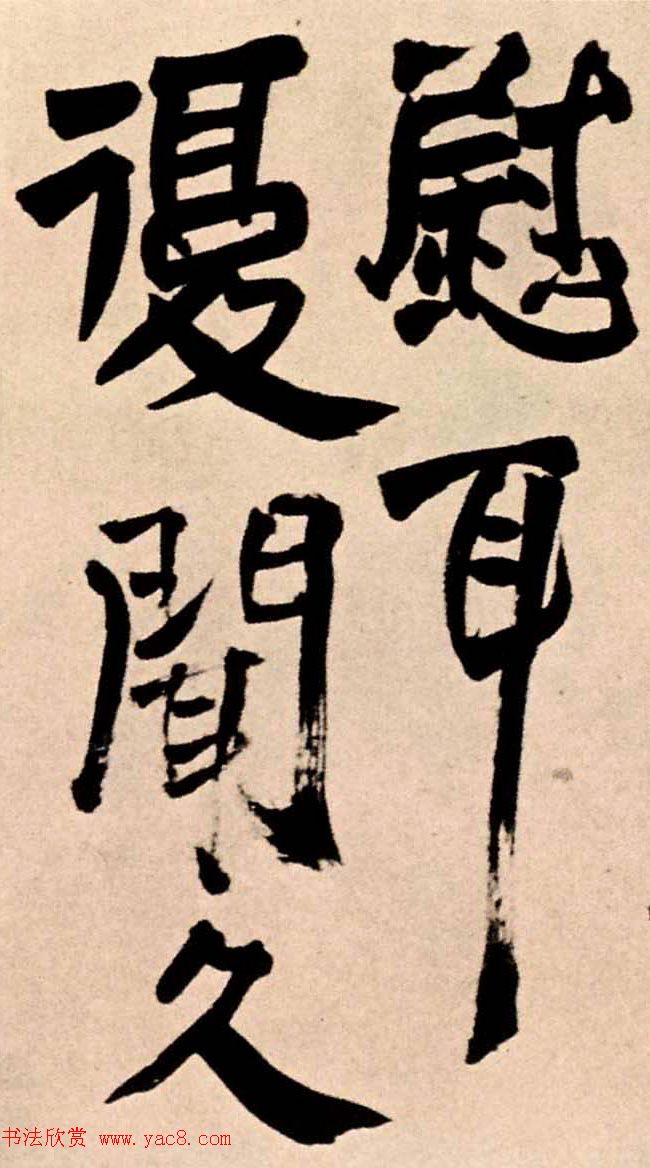 慰耳
復聞久
书法欣赏 www.yac8.com